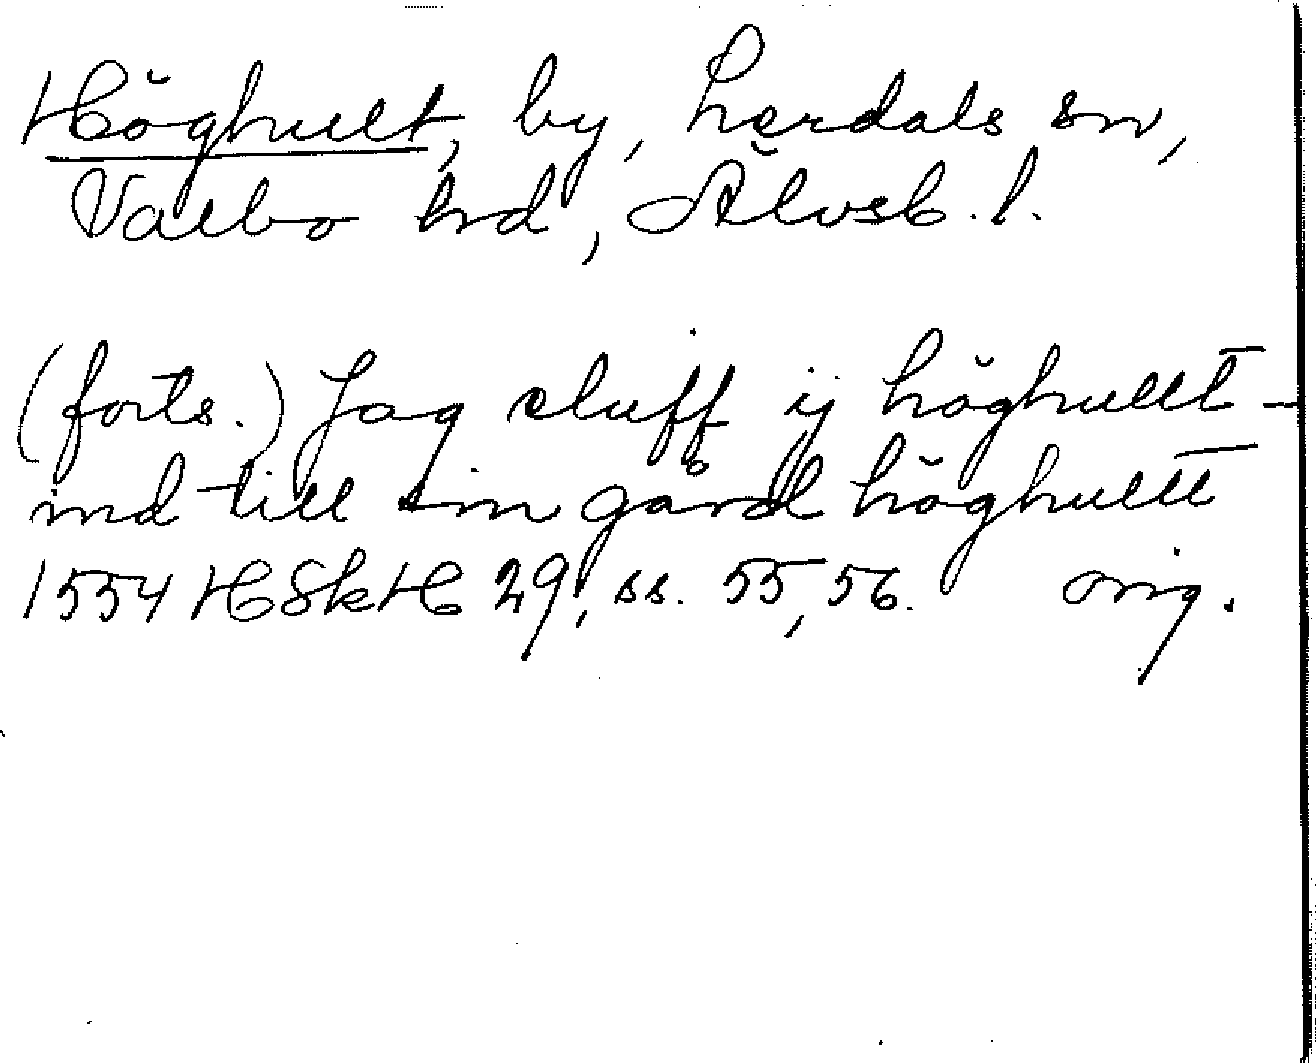 Höghult, by, Lerdals sn,
Valbo hrd, Älvsb. l.
(forts.) Jag sluff ij höghullt –
ind till sin gård höghultt
1554 HSkH 29, ss. 55, 56. orig.